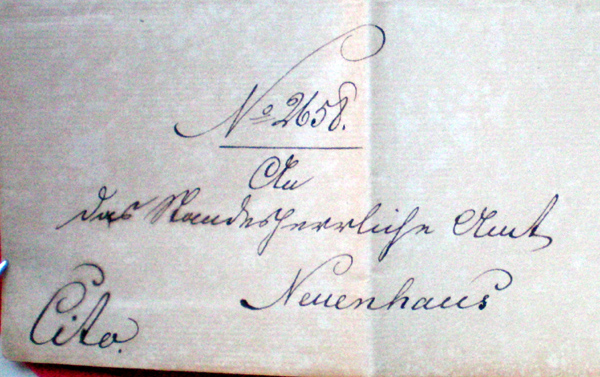 No 2658.
An
das Standesherrliche Amt
Neuenhaus
Cito.